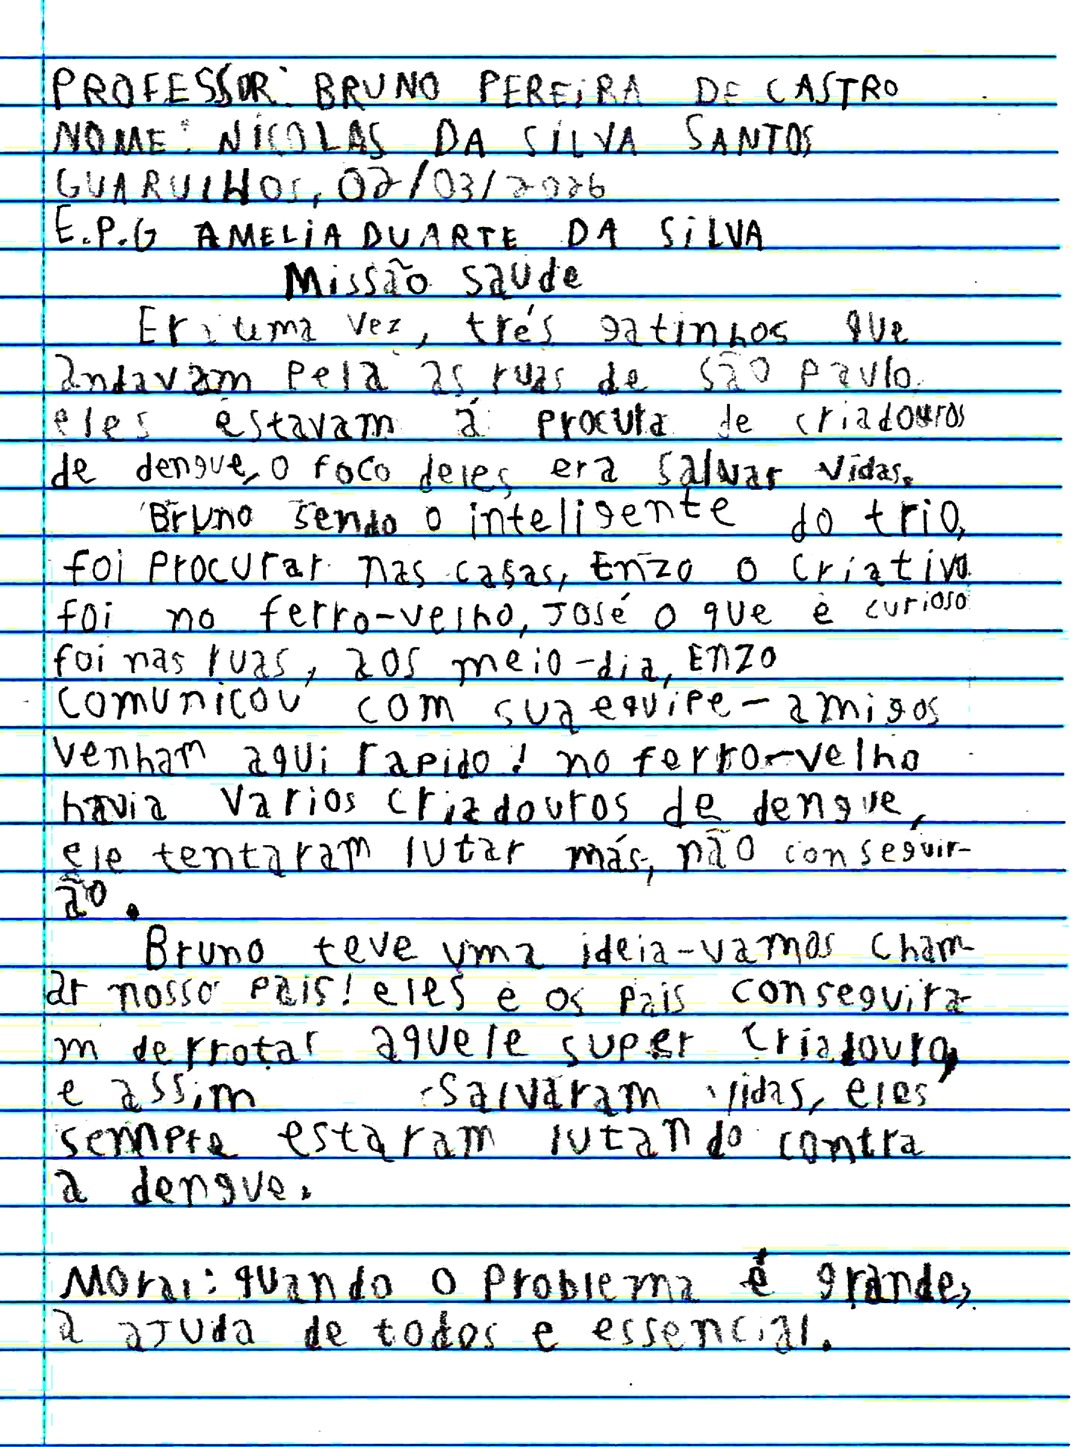 PROFESSOR: BRUNO PEREIRA DE CASTRO
NOME: NICOLAS DA SILVA SANTOS
GUARULHOS, 02/03/2026
E.P.G AMELIA DUARTE DA SILVA
Missão saude
Era uma vez, três gatinhos que
andavam pela as ruas de são paulo.
eles estavam á procura de criadouros
de dengue, o foco deles era salvar vidas.
Bruno sendo o inteligente do trio,
foi procurar nas casas, Enzo o criativo
foi no ferro-velho, José o que é curioso
foi nas ruas, aos meio-dia, Enzo
comunicou com sua equipe- amigos
venham aqui rapido! no ferro-velho
havia varios criadouros de dengue,
ele tentaram lutar más, não conseguir-
ão.
Bruno teve uma ideia-vamos cham-
ar nosso pais! eles e os pais conseguira-
m derrotar aquele super criadouro,
e assim salvaram vidas, eles
sempre estaram lutando contra
a dengue.
Moral: quando o problema é grande,
a ajuda de todos e essencial.